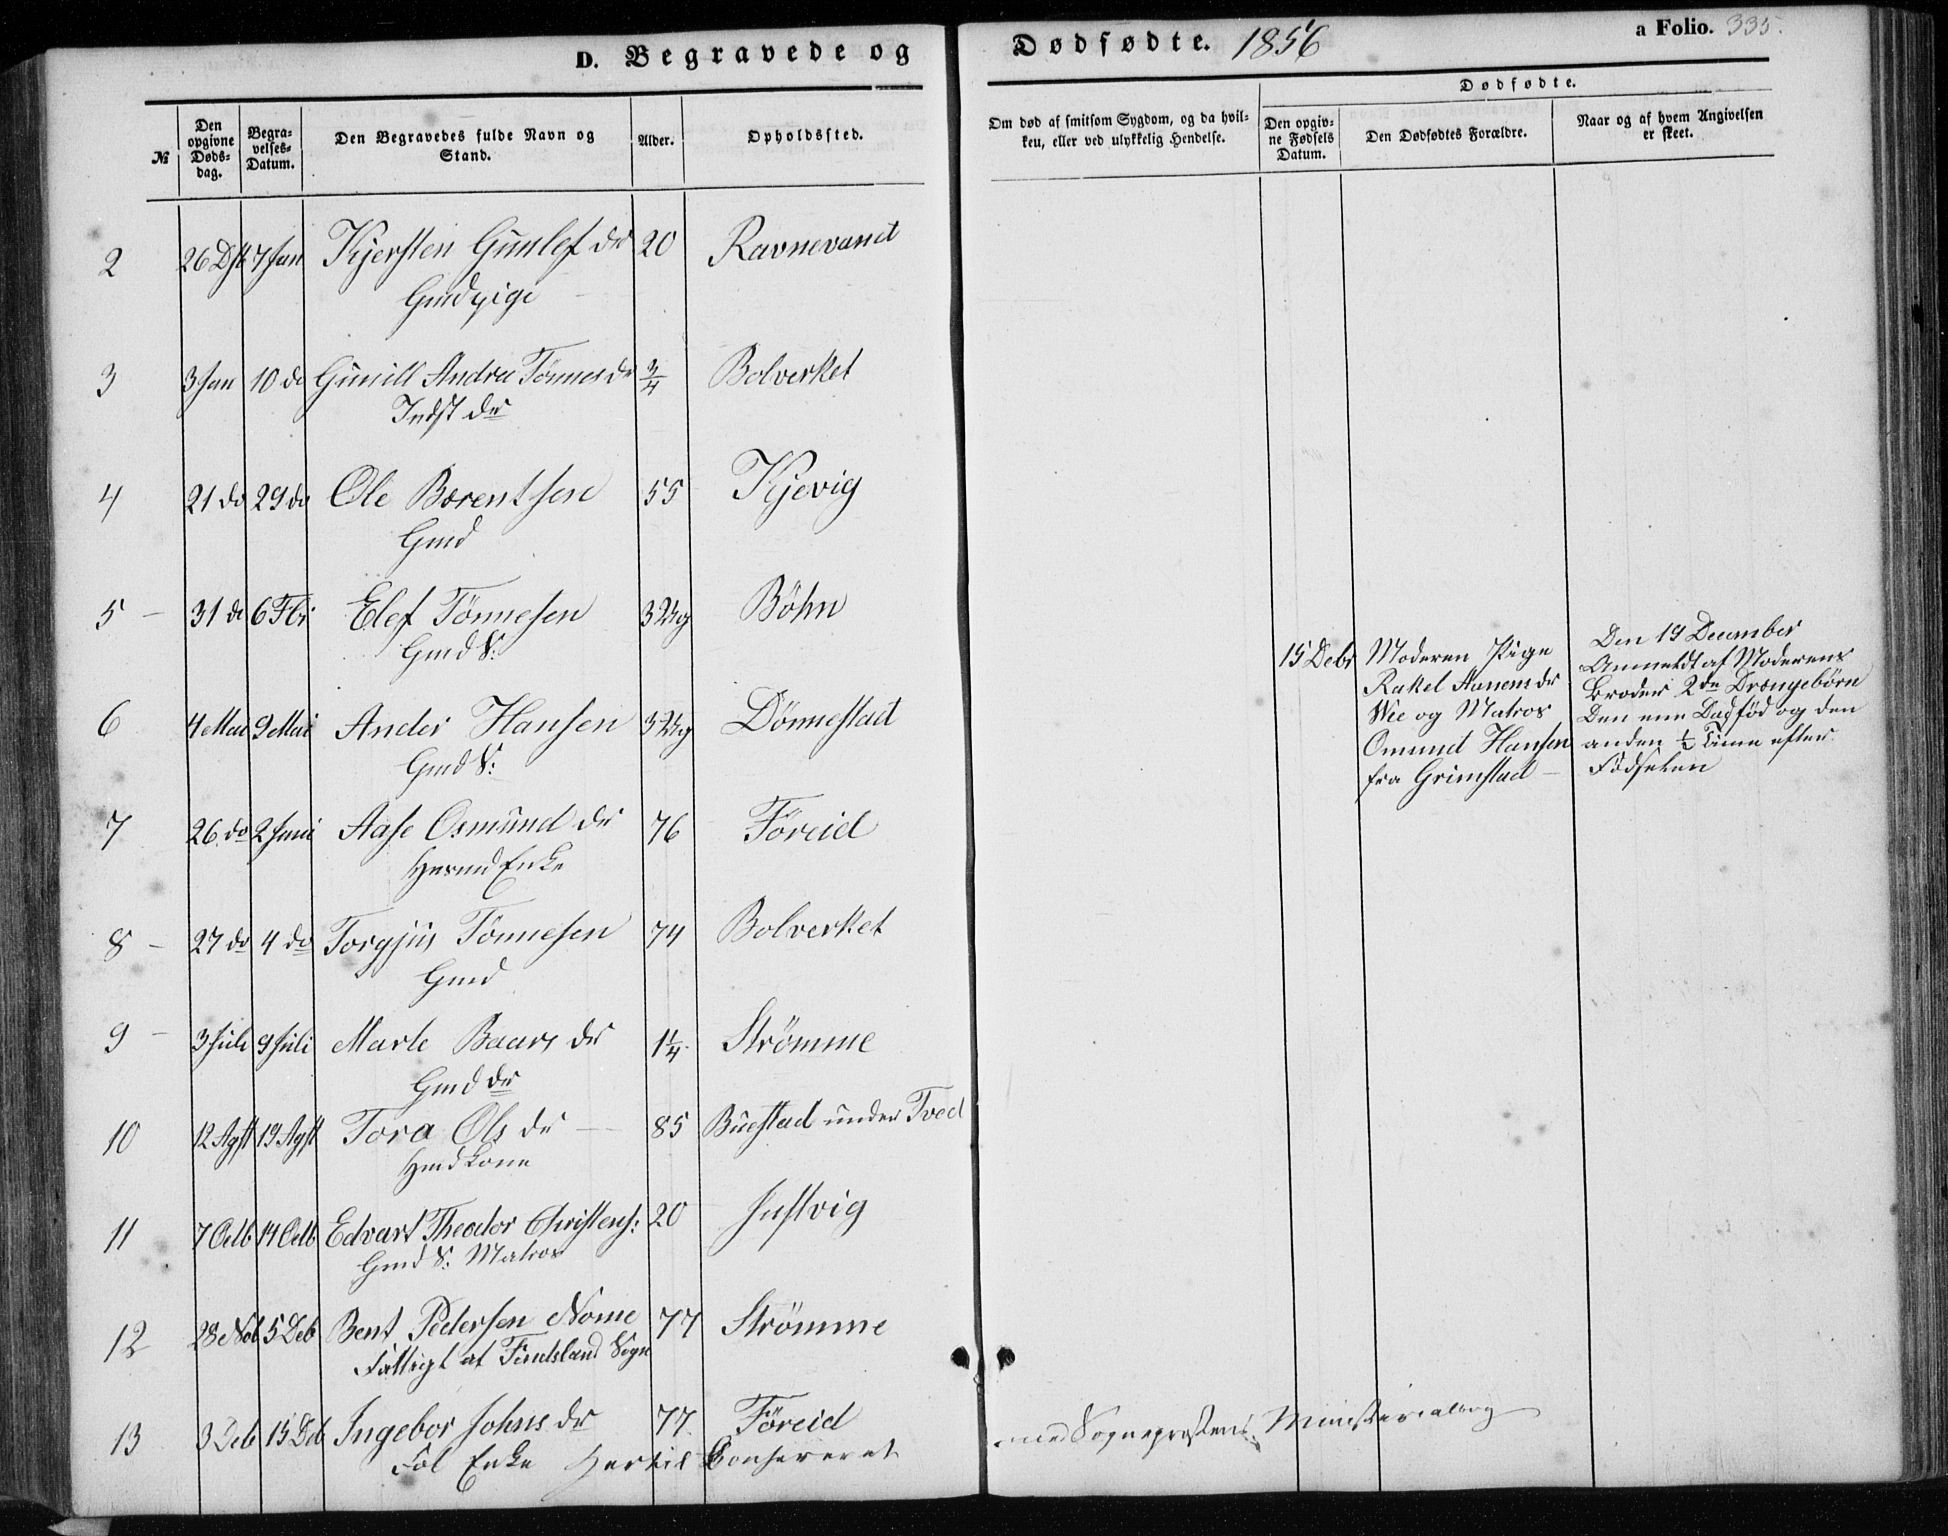 D. Begravede og Dødfødte. 1856
a Folio. 335.
№
Den opgivne Døds-dag.
Begra-velses-Datum.
Den Begravedes fulde Navn og Stand.
Alder.
Opholdssted.
Om død af smitsom Sygdom, og da hvil-ken, eller ved ulykkelig Hendelse.
Dødfødte.
Den opgiv-ne Fødsels Datum.
Den Dødfødtes Forældre.
Naar og af hvem Angivelsen er skeet.
2 26 Dsb 7 Jan Kjersten Gunlef dr 20 Ravnevand
Gmdpige
3 3 Jan 10 do Gunill Andrea Tönnes dr 3/4 Bolverket
Indst dr
4 21 do 29 do Ole Berentsen 55 Kjevig
Gmd
5 - 31 do 6 Fbr Elef Tönnesen 3 Böhn
Gmd S:
6 4 Mai 9 Mai Ander Hansen 3 Dönnestad
Gmd S:
7 26 do 2 Juni Aase Osmund dr 76 Föreid
Husmd Enke
8 - 27 do 4 do Torgjus Tönnesen 74 Bolverket
Gmd
9 - 3 Juli 9 Juli Marte Baars dr 1 1/4 Strömme
Gmd dr
10 12 Agst 19 Agst Tora Ols dr - 85 Buestad under Tved
Hmdkone
11 7 Octb 14 Octb Edvart Theodor Christens: 20 Justvig
Gmd S: Matros
12 28 Nob 5 Deb Bent Pedersen Nome 77 Strömme
Fattigl af Findsland Sogn
13 3 Deb 15 Deb Ingebor Johns dr 77 Föreid
Fol Enke
Hertil Confereret med Sognepræstens Ministerialbog
15 Debr
Moderen Pige
Rakel Aanens dr
Wee og Matros
Omund Hansen
fra Grimstad -
Den 19 December
Anmeldt af Moderens
Broder 2de Drengebörn
Den ene Dødföd og den
anden 1/2 Time efter
Födselen